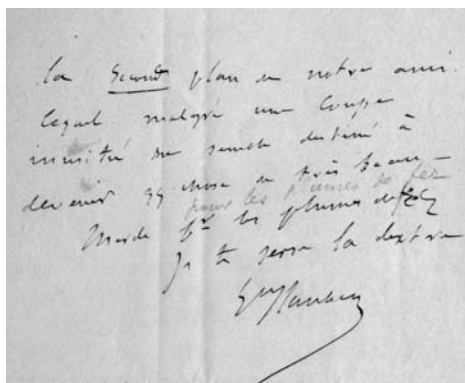 la Second plan de notre ami.
lequel malgré une coupe
inusitée me semble destiné à
devenir qq chose de très beau –
pour les plumes de fer
Merde pr les plumes de fer
Je te serre la dextre
Gve Flaubert